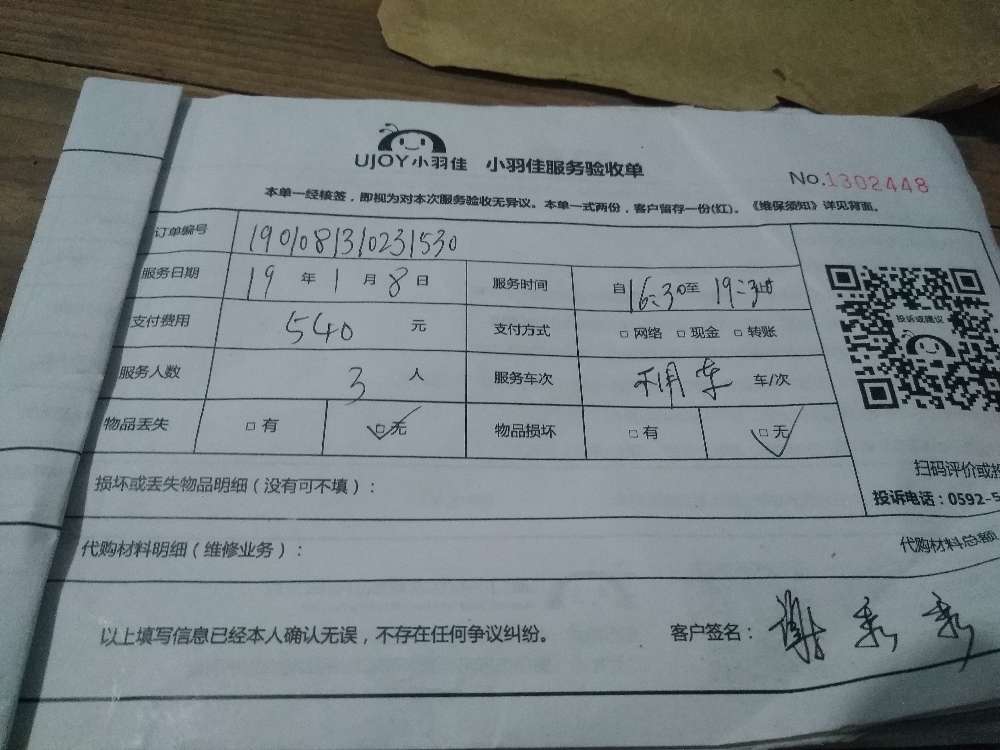 UJOY小羽佳 小羽佳服务验收单
No.1302448
本单一经核签，即视为对本次服务验收无异议。本单一式两份，客户留存一份(红)。《维保须知》详见背面。
订单编号 190108131023 1530
服务日期 19 年 1 月 8 日 服务时间 自 16:30 至 19:30
支付费用 540 元 支付方式 □ 网络 □ 现金 □ 转账
投诉或建议
服务人数 3 人 服务车次 车/次
物品丢失 □ 有 □ 无 物品损坏 □ 有 □ 无
损坏或丢失物品明细（没有可不填）：
扫码评价或
投诉电话：0592-5
代购材料明细（维修业务）： 代购材料总额
以上填写信息已经本人确认无误，不存在任何争议纠纷。 客户签名： 谢秀秀